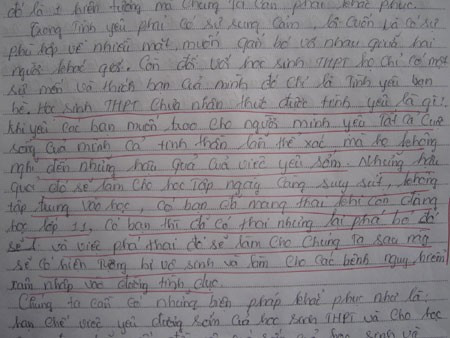 đó là 1 hiện tượng mà chúng ta cần phải khắc phục.
Trong tình yêu phải có sự rung cảm, lôi cuốn và có sự
phù hợp về nhiều mặt, muốn gắn bó với nhau giữa hai
người khác giới. Còn đối với học sinh THPT họ chỉ có một
sự mến và thích bạn của mình đó chỉ là tình yêu bạn
bè. Học sinh THPT chưa nhận thức được tình yêu là gì:
khi yêu các bạn muốn trao cho người mình yêu tất cả cuộc
sống của mình cả tinh thần lẫn thể xác mà họ không
nghĩ đến những hậu quả của việc yêu sớm. Nhưng hậu
quả đó sẽ làm cho học tập ngày càng suy sút, không
tập trung vào học, có bạn đã mang thai khi còn đang
học lớp 11, có bạn thì đã có thai nhưng lại phá bỏ đi
và việc phá thai đó sẽ làm cho chúng ta sau này
sẽ có hiện tượng bị vô sinh và làm cho các bệnh nguy hiểm
xâm nhập vào đường tình dục.
Chúng ta cần có những biện pháp khắc phục như là:
hạn chế việc yêu đương sớm của học sinh THPT và cho học